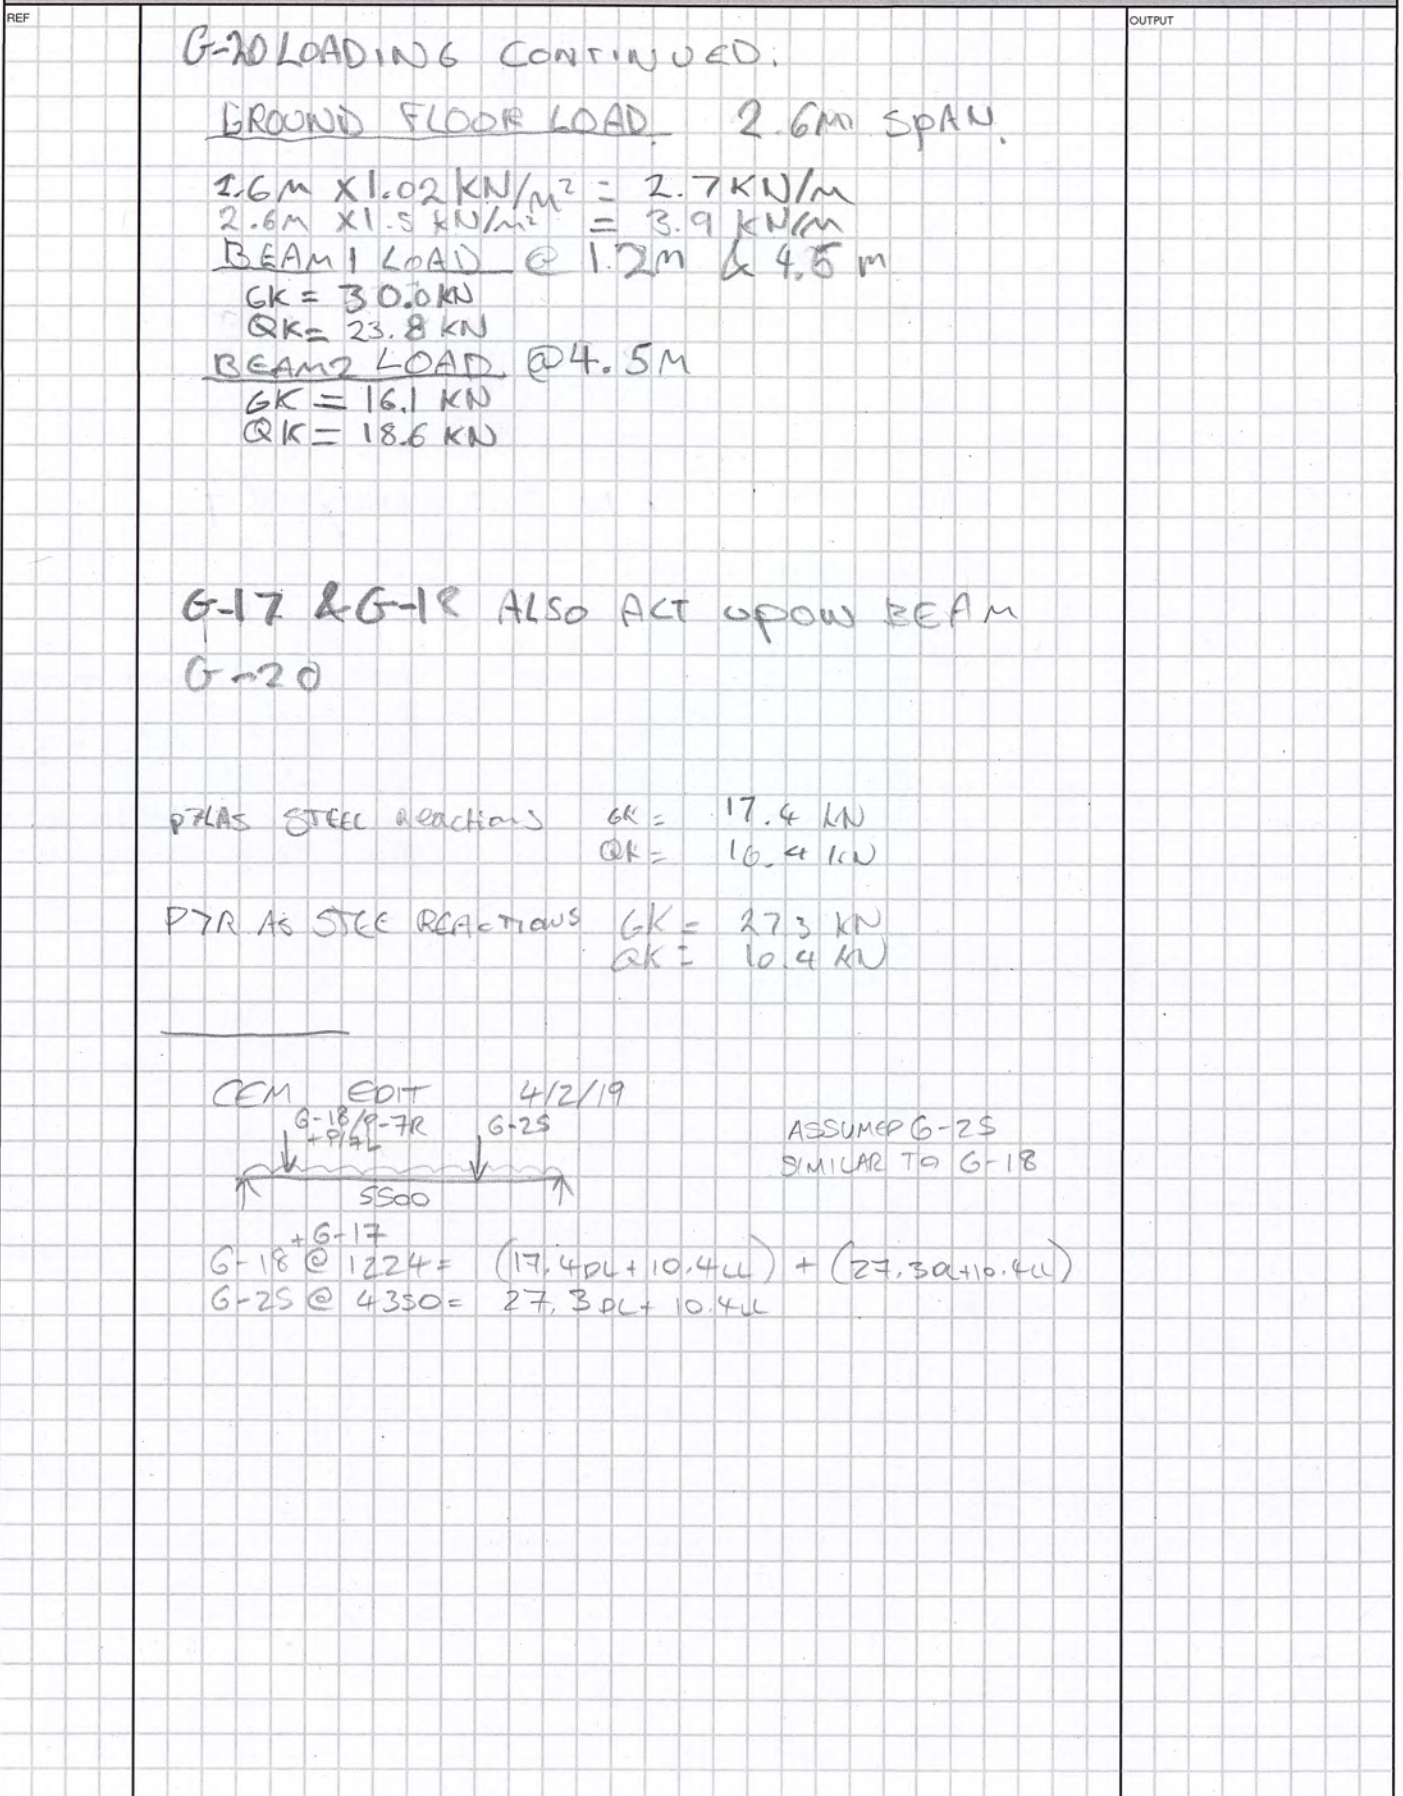 REF
OUTPUT
G-20 LOADING CONTINUED.
GROUND FLOOR LOAD 2.6M SPAN.
2.6M X1.02 KN/M² = 2.7KN/M
2.6M X1.5 KN/M² = 3.9 KN/M
BEAM 1 LOAD @ 1.2M & 4.5 M
GK = 30.0KN
QK= 23.8 KN
BEAM2 LOAD @4.5M
GK = 16.1 KN
QK = 18.6 KN
G-17 & G-18 ALSO ACT UPON BEAM
G-20
P7LAS STEEL Reactions GK = 17.4 KN
QK = 10.4 KN
P7R AS STEE REACTIONS GK = 27.3 KN
QK = 10.4 KN
CEM EDIT 4/2/19
G-18/P-7R G-25
+P/7L
ASSUMED G-25
SIMILAR TO G-18
5500
+G-17
G-18 @ 1224 = (17.4DL + 10.4LL) + (27.3DL+10.4LL)
G-25 @ 4350 = 27.3DL + 10.4LL